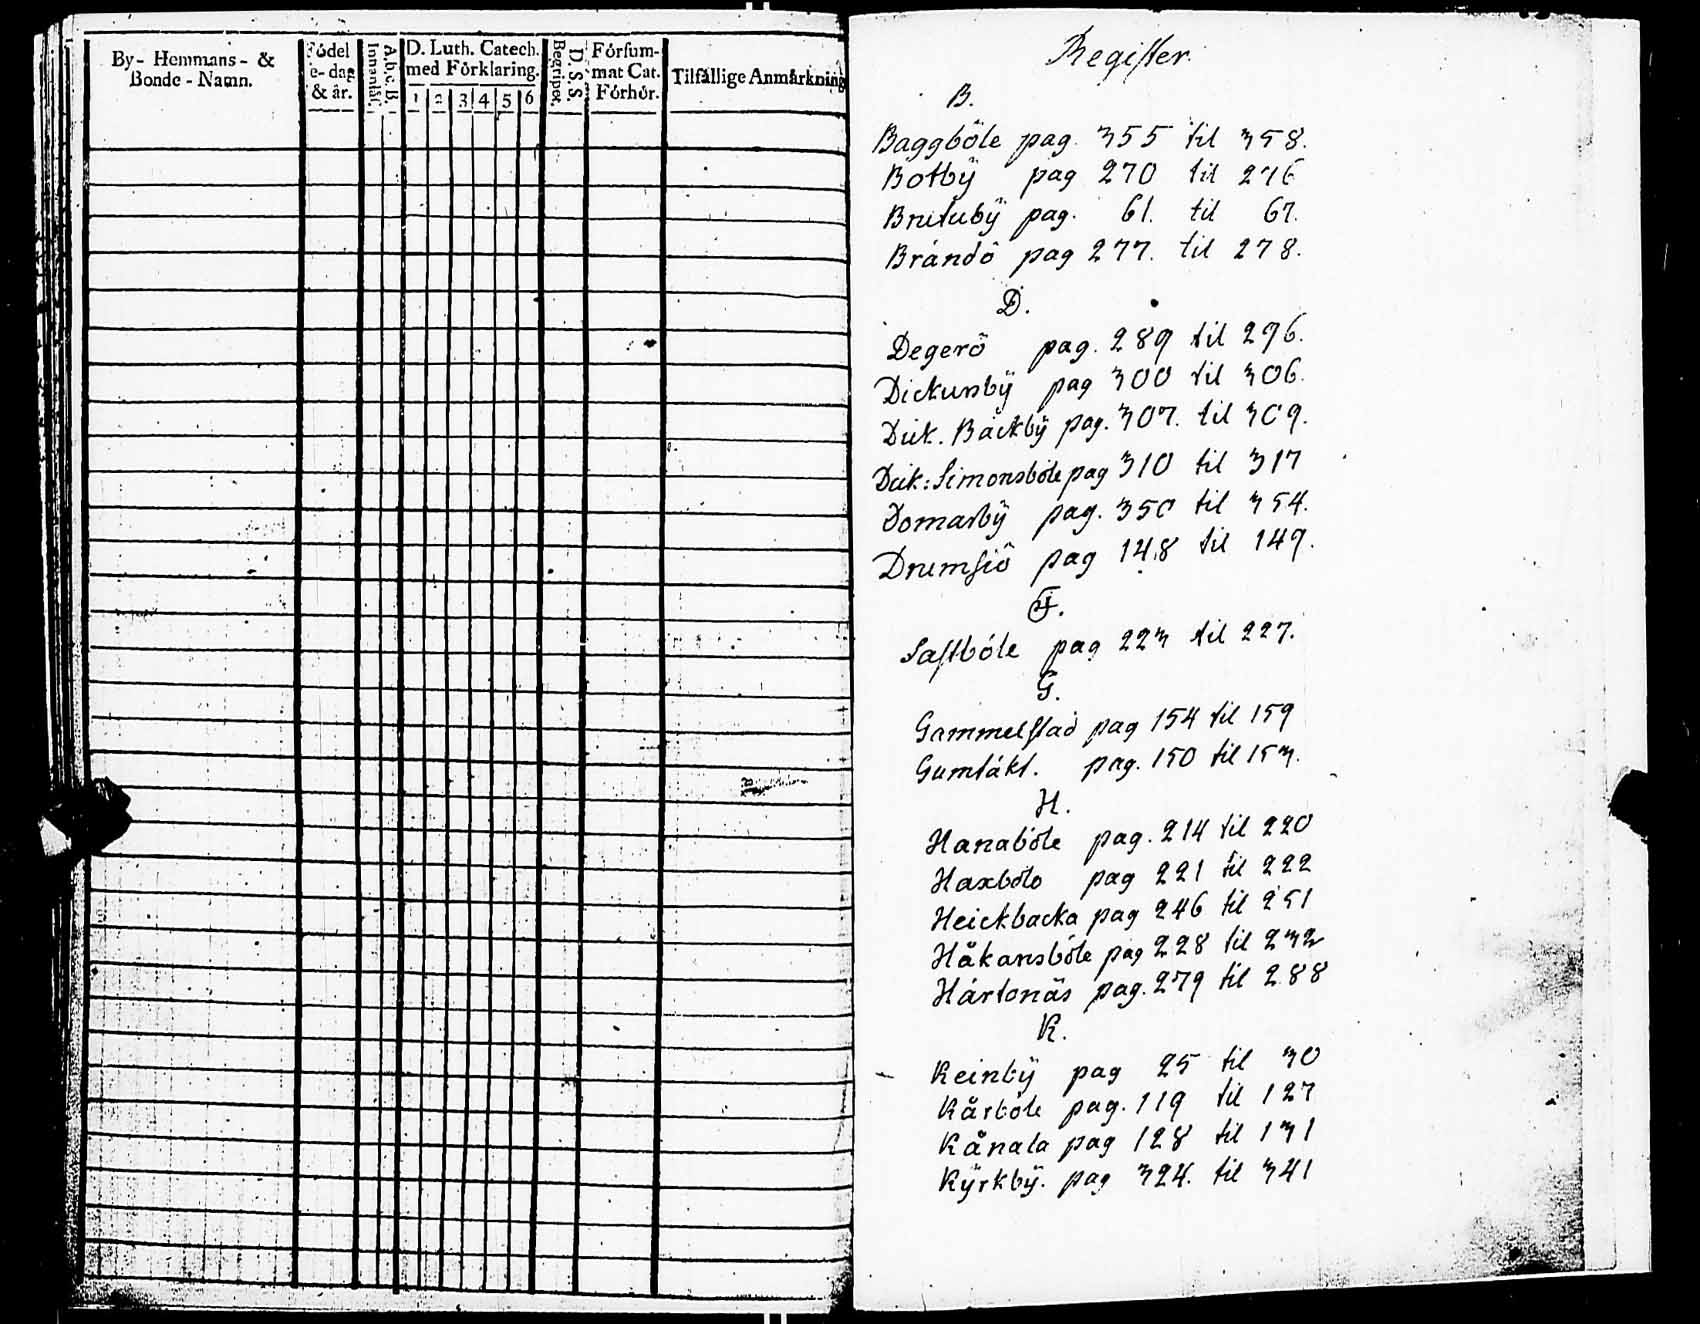 By- Hemmans- &
Bonde-Namn.
Födel
e-dag
& år.
A.b.c.B.
Innanläs.
D. Luth. Catech.
med Förklaring.
1 2 3 4 5 6
D. S. S.
Begriper.
Försum-
mat Cat.
Förhör.
Tilfällige Anmärkning
Register.
B.
Baggböle pag. 355 til 358.
Botbÿ pag 270 til 276
Brutubÿ pag. 61. til 67.
Brändö pag 277. til 278.
D.
Degerö pag. 289 til 296.
Dickursbÿ pag 300 til 306.
Dick. Backbÿ pag. 307. til 309.
Dick: Simonsböle pag 310 til 317
Domarbÿ pag. 350 til 354.
Drumsiö pag 148 til 149.
F.
Fastböle pag 223 til 227.
G.
Gammelstad pag 154 til 159
Gumtäkt. pag. 150 til 153.
H.
Hanaböle pag. 214 til 220
Haxböle pag 221 til 222
Heickbacka pag 246 til 251
Håkansböle pag 228 til 232
Härtonäs pag. 279 til 288
K.
Keinbÿ pag 25 til 30
Kårböle pag. 119 til 127
Kånala pag 128 til 131
Kÿrkbÿ. pag 324. til 341